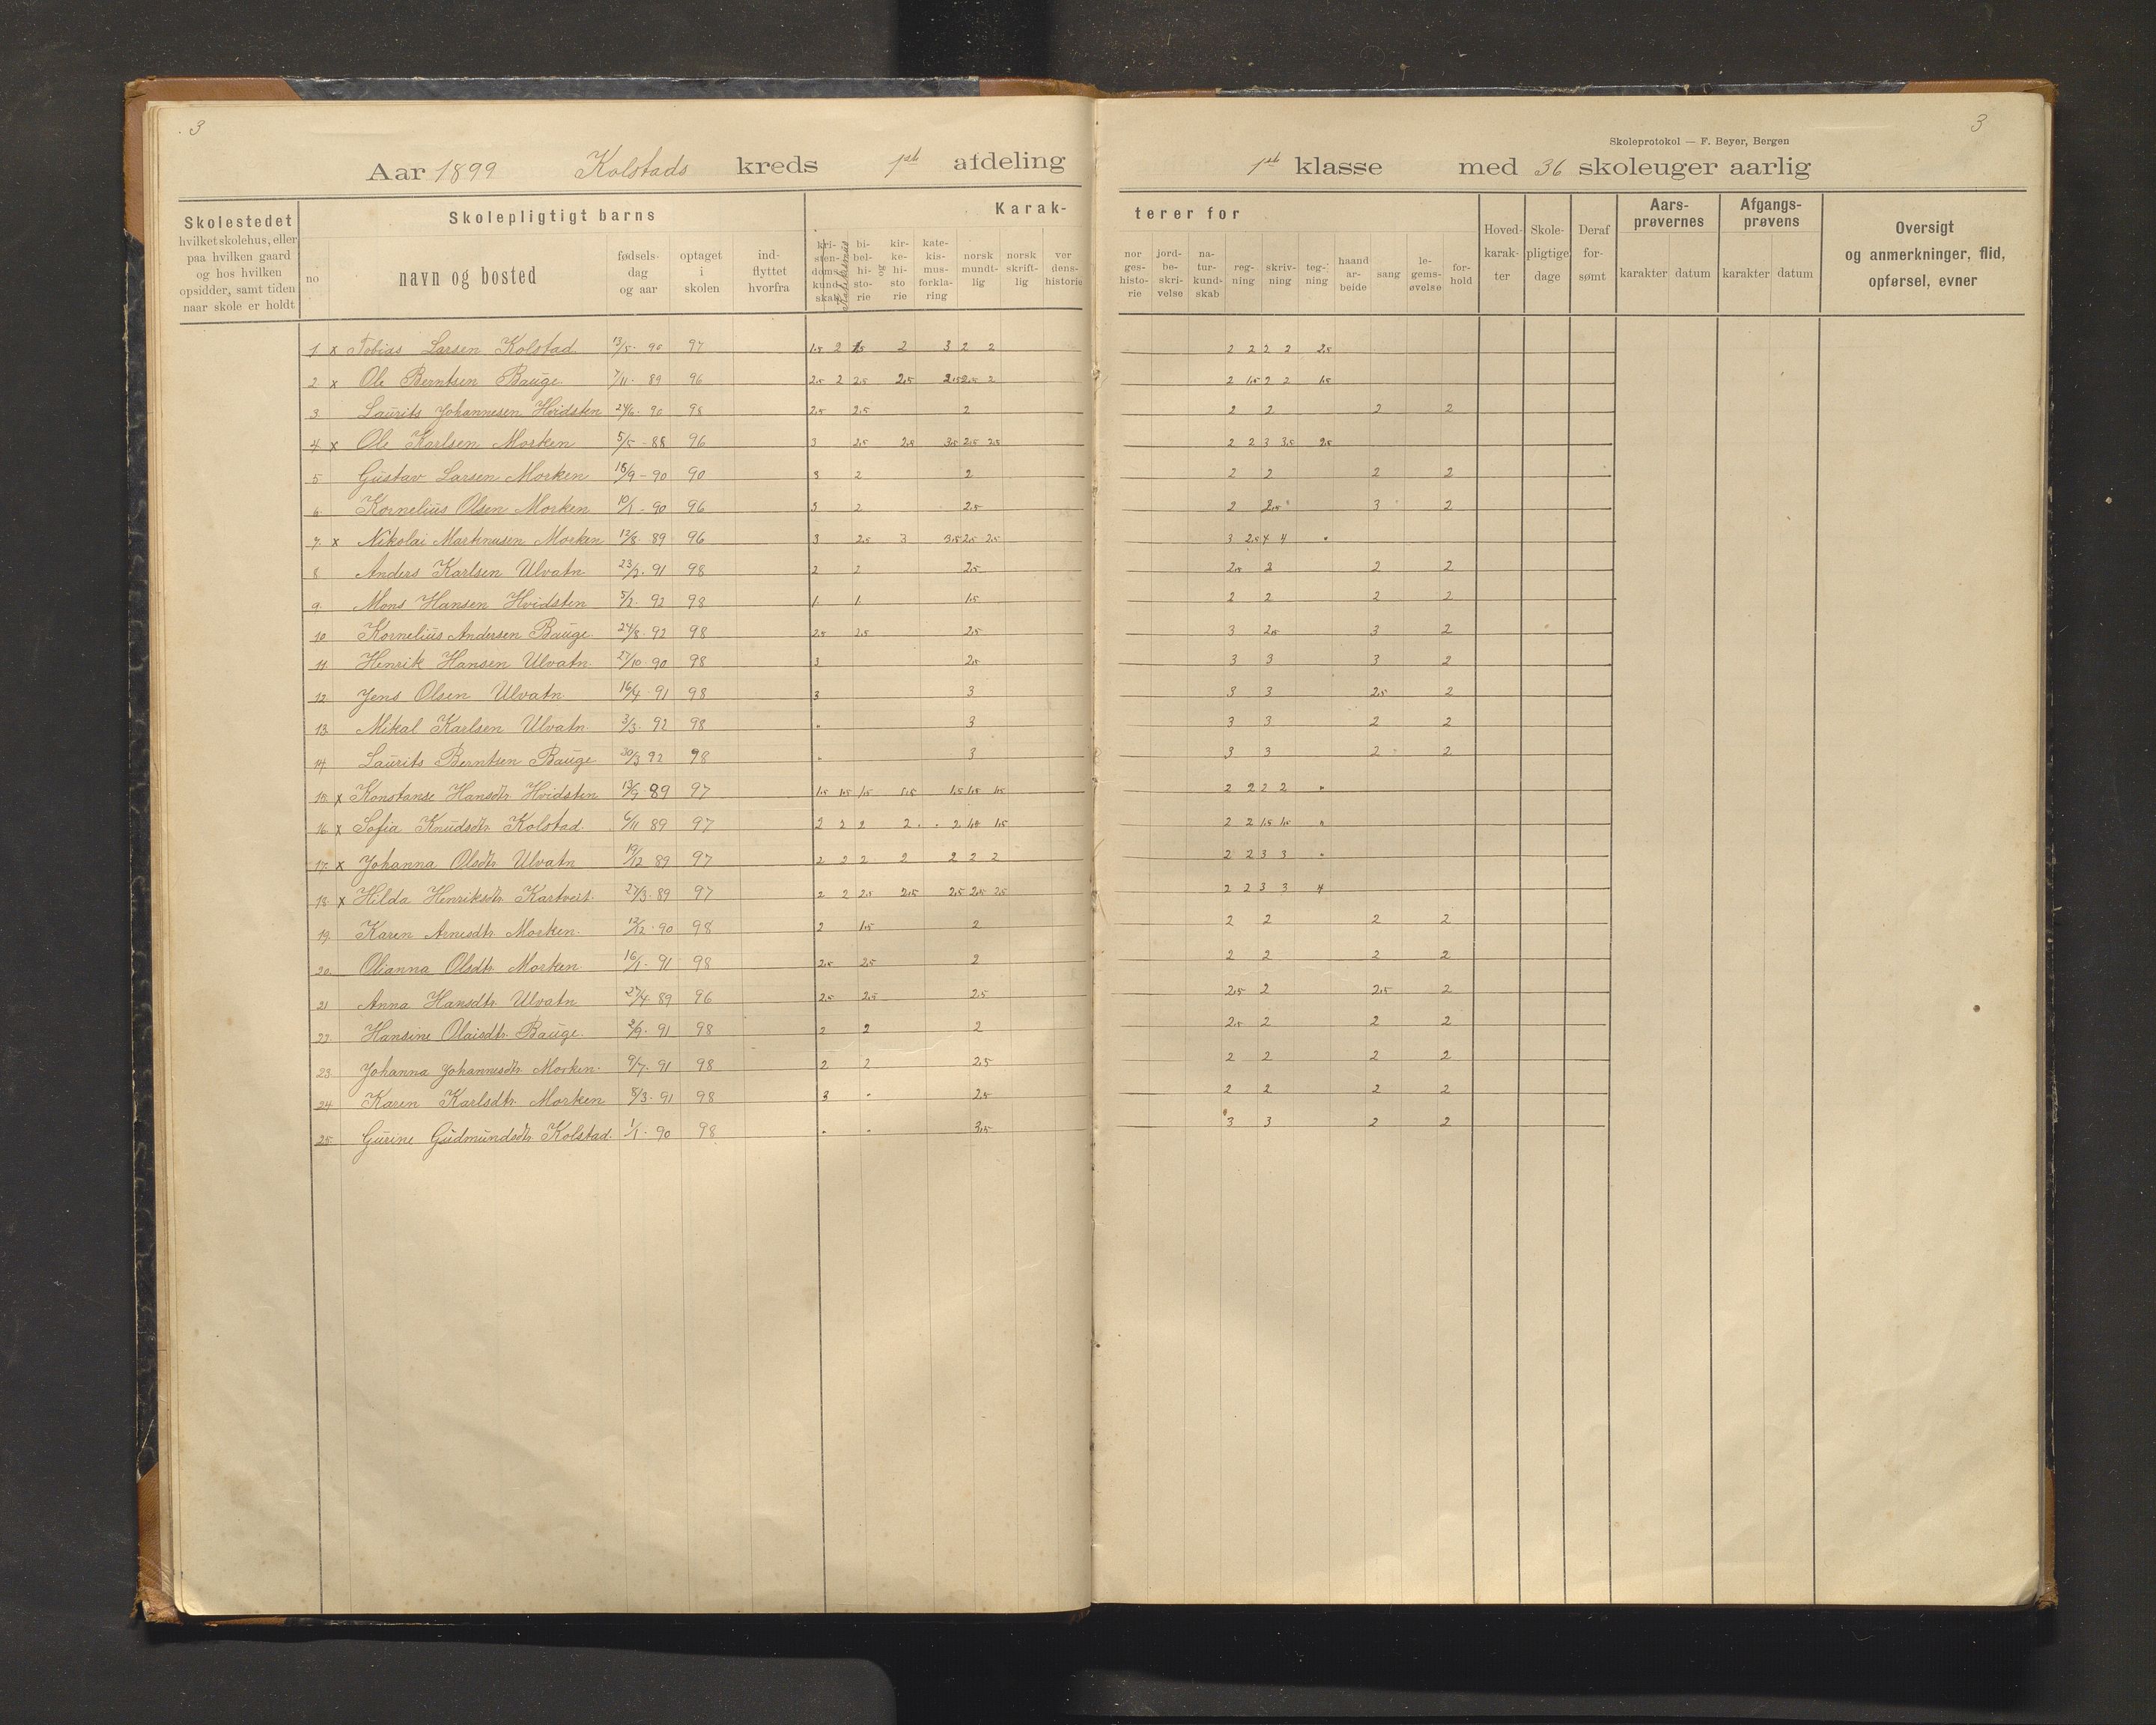 3
3
Skoleprotokol — F. Beyer, Bergen
Aar 1899 Kolstads kreds 1ste afdeling
1ste klasse med 36 skoleuger aarlig
Skolestedet
hvilket skolehus, eller
paa hvilken gaard
og hos hvilken
opsidder, samt tiden
naar skole er holdt
Skolepligtigt barns
no
navn og bosted
fødsels-
dag
og aar
optaget
i
skolen
ind-
flyttet
hvorfra
Karak-
kri-
sten-
doms-
kund-
skab
Katekismus
bi-
bel-
hi-
sto-
rie
og
kir-
ke-
hi-
sto
rie
kate-
kis-
mus-
forkla-
ring
norsk
mundt-
lig
norsk
skrift-
lig
ver
dens-
historie
terer for
nor
ges-
histo-
rie
jord-
be-
skri-
velse
na-
tur-
kund-
skab
reg-
ning
skriv-
ning
teg-
ning
haand
ar-
beide
sang
le-
gems-
øvelse
for-
hold
Hoved-
karak-
ter
Skole-
pligtige
dage
Deraf
for-
sømt
Aars-
prøvernes
karakter datum
Afgangs-
prøvens
karakter datum
Oversigt
og anmerkninger, flid,
opførsel, evner
1 x Tobias Larsen Kolstad 13/5 - 90 97 1.5 2 1.5 2 3 2 2 2 2 2 2 2.5
2 x Ole Berntsen Bauge 7/11 - 89 96 2.5 2 2.5 2.5 2.5 2.5 2 2 1.5 2 2 1.5
3 Laurits Johannesen Hvidsten 24/6 - 90 98 2.5 2.5 2 2 2 2 2
4 x Ole Karlsen Morken 5/5 - 88 96 3 2.5 2.5 3.5 2.5 2.5 2 2 3 3.5 2.5
5 Gustav Larsen Morken 18/9 - 90 90 3 2 2 2 2 2 2
6 Kornelius Olsen Morken 10/1 - 90 96 3 2 2.5 2 2.5 3 2
7 x Nikolai Martinusen Morken 12/8 89 96 3 2.5 3 3.5 2.5 2.5 3 2.5 4 4 "
8 Anders Karlsen Ulvatn 23/2 91 98 2 2 2.5 2.5 2 2 2
9 Mons Hansen Hvidsten 5/2 92 98 1 1 1.5 2 2 2 2
10 Kornelius Andersen Bauge 24/8 92 98 2.5 2.5 2.5 3 2.5 3 2
11 Henrik Hansen Ulvatn 27/10 90 98 3 2.5 3 3 3 2
12 Jens Olsen Ulvatn 16/4 91 98 3 3 3 3 2.5 2
13 Mikal Karlsen Ulvatn 3/3 92 98 " 3 3 3 2 2
14 Laurits Berntsen Bauge 30/3 92 98 " 3 3 3 2 2
15 x Konstanse Hansdtr. Hvidsten 13/9 89 97 1.5 1.5 1.5 1.5 1.5 1.5 1.5 2 2 2 2 "
16 x Sofia Knudsdtr. Kolstad 6/11 89 97 2 2 2 2 2 1.5 1.5 2 2 1.5 1.5 "
17 x Johanna Olsdtr. Ulvatn 19/12 89 97 2 2 2 2 2 2 2 2 2 3 3 "
18 x Hilda Henriksdtr. Kartveit 27/3 89 97 2 2 2.5 2.5 2.5 2.5 2.5 2 2 3 3 4
19 Karen Arnesdtr. Morken 12/12 90 98 2 1.5 2 2 2 2 2
20 Olianna Olsdtr. Morken 16/1 91 98 2.5 2.5 2 2 2 2 2
21 Anna Hansdtr. Ulvatn 27/4 89 96 2.5 2.5 2.5 2.5 2 2.5 2
22 Hansine Olaisdtr. Bauge 2/9 91 98 2 2 2 2.5 2 2 2
23 Johanna Johannesdtr. Morken 9/7 91 98 2 2 2.5 2 2 2 2
24 Karen Karlsdtr. Morken 8/3 91 98 3 " 2.5 2 2 2 2
25 Gurine Gudmundsdtr. Kolstad 1/1 90 98 " " 3.5 3 3 2 2